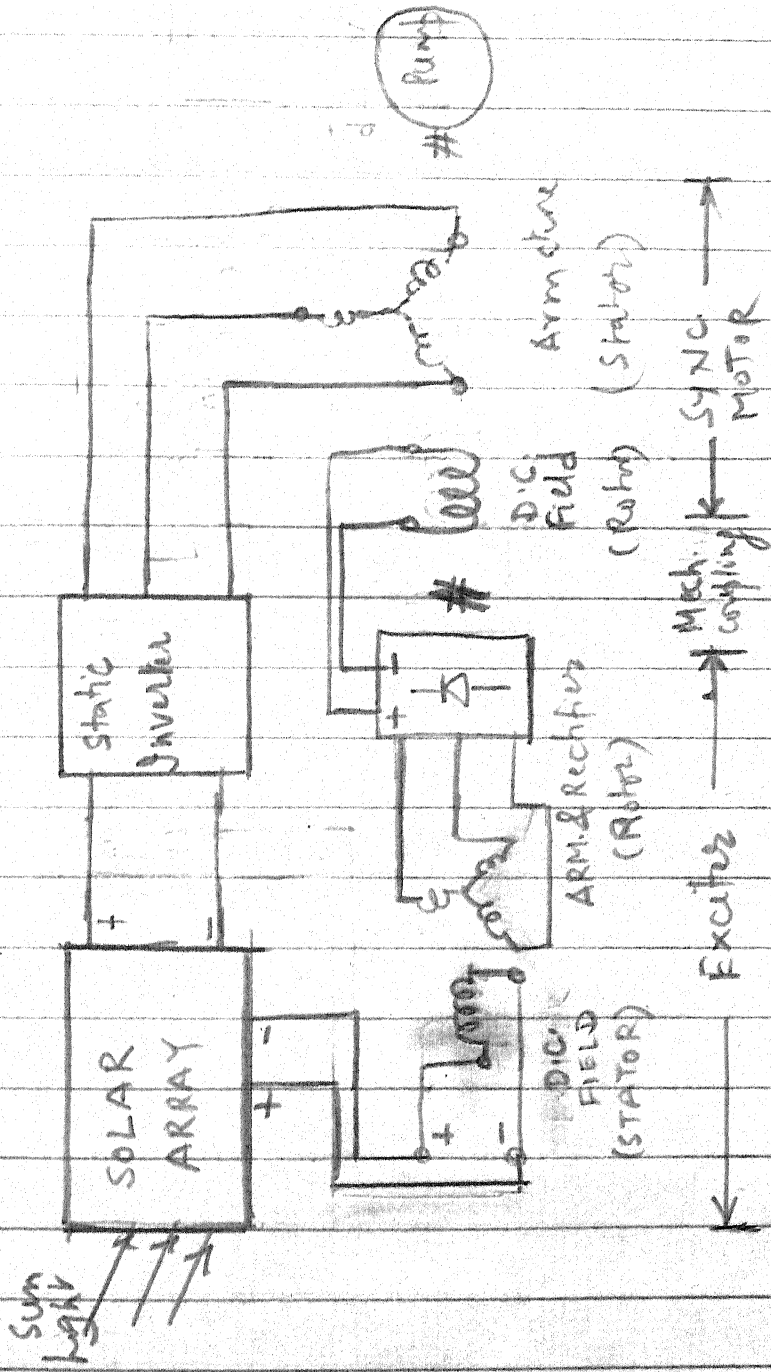 Sun
light
SOLAR
ARRAY
+
-
+
-
Static
Inverter
+
-
D.C.
FIELD
(STATOR)
ARM. & Rectifier
(Rotor)
+
-
#
D.C.
Field
(Rotor)
Armature
(Stator)
#
Pump
Exciter
Mech.
coupling
SYNC.
MOTOR